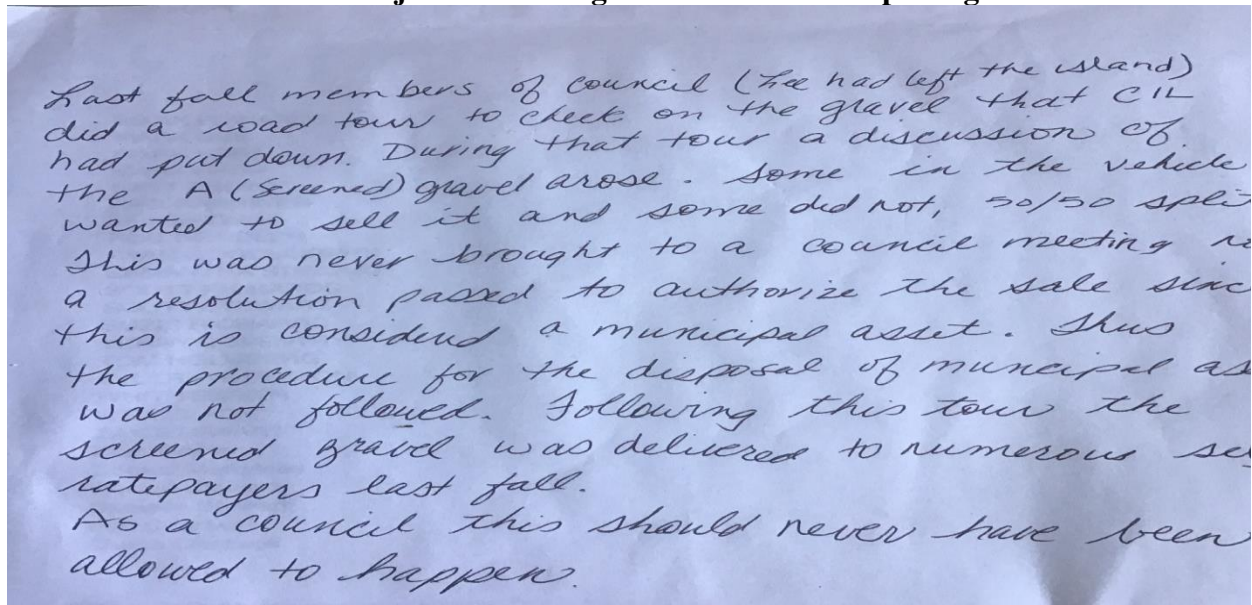 Last fall members of council (Lee had left the island)
did a road tour to check on the gravel that CIL
had put down. During that tour a discussion of
the A (Screened) gravel arose. Some in the vehicle
wanted to sell it and some did not, 50/50 split
This was never brought to a council meeting
a resolution passed to authorize the sale sinc
this is considerd a municipal asset. Thus
the procedure for the disposal of muncipal as
was not followed. Following this tour the
screened gravel was delivered to numerous
ratepayers last fall.
As a council this should never have been
allowed to happen.